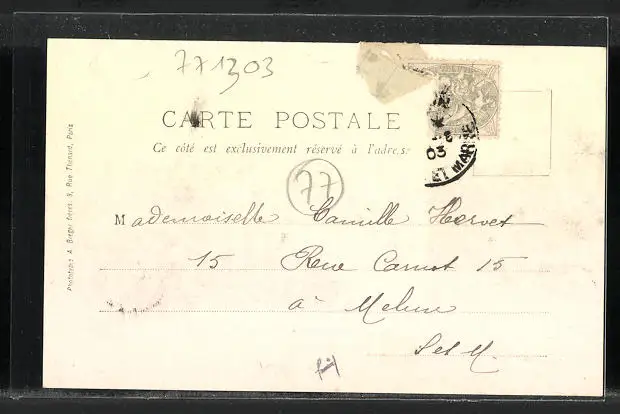 771303
CARTE POSTALE
Ce côté est exclusivement réservé à l'adresse
77
Mademoiselle Camille Hervet
15 Rue Carnot 15
à Melun
S et M.
03
ET MARNE
Phototypie A. Breger frères, 9, Rue Thénard, Paris